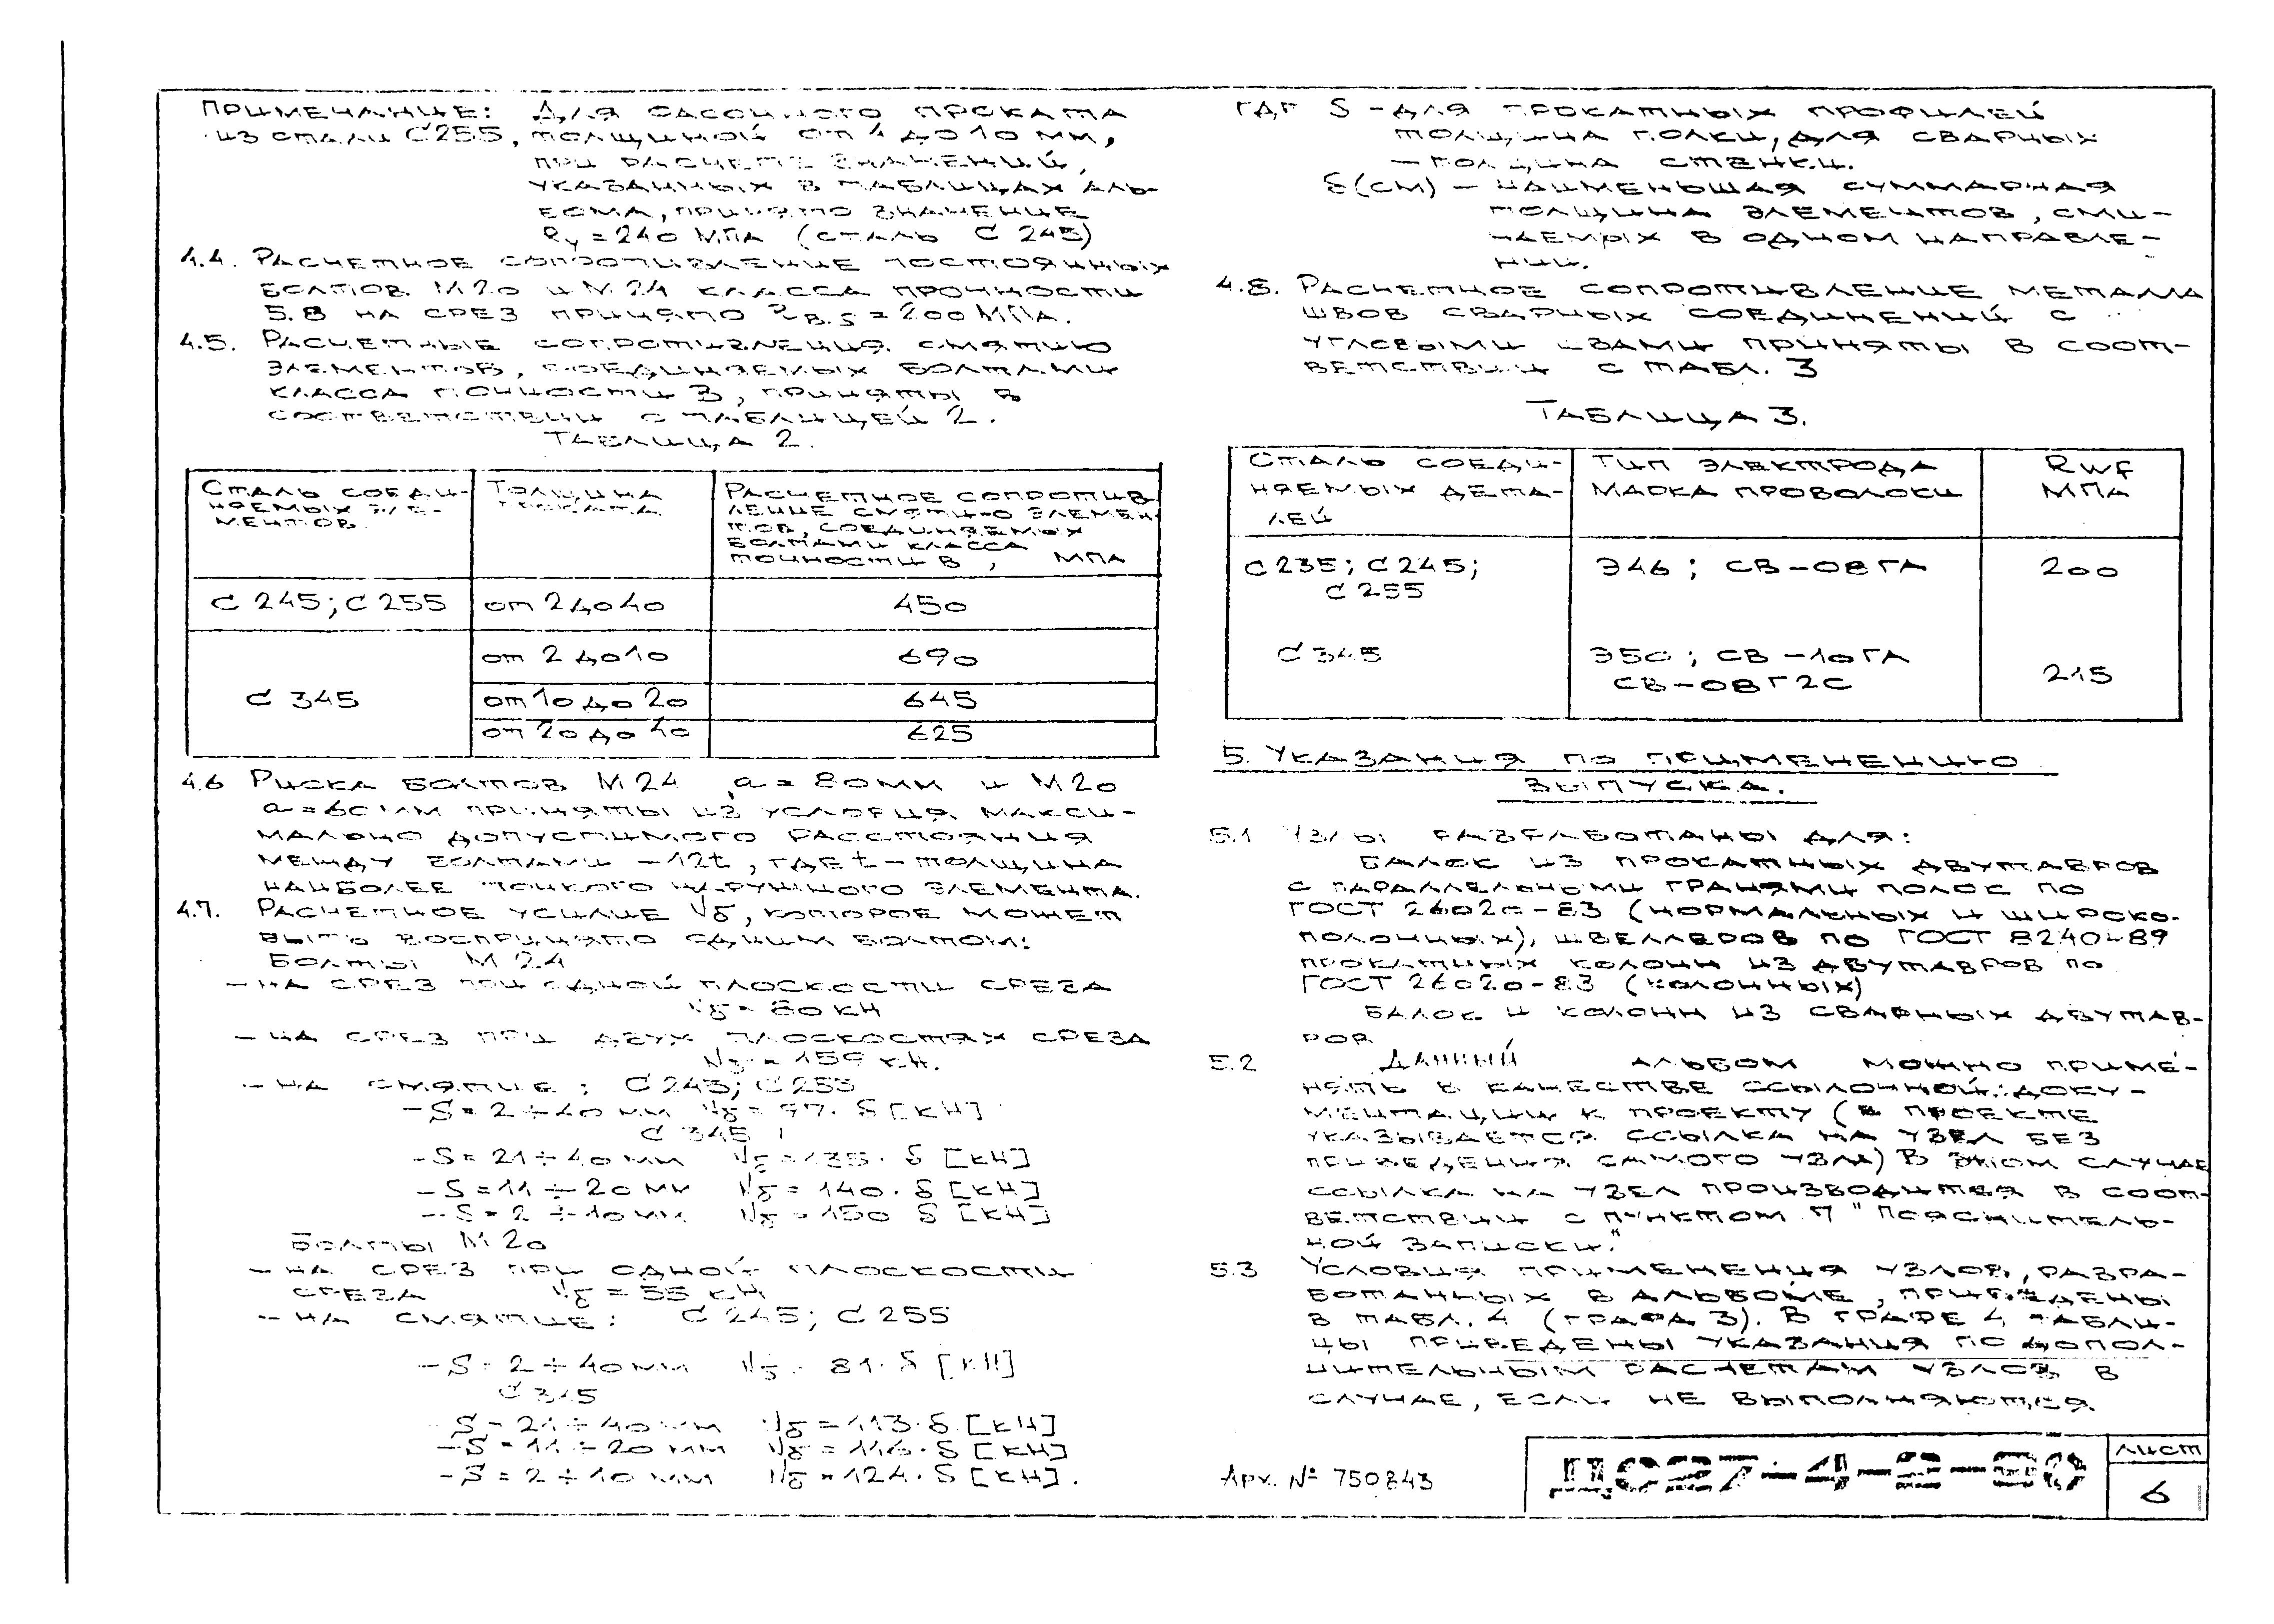 ПРИМЕЧАНИЕ: Для фасонного проката
из стали С255, толщиной от 4 до 10 мм,
при расчете значений,
указанных в таблицах аль-
бома, принято значение
Rу = 240 МПа (сталь С 245)
4.4. Расчетное сопротивление постоянных
болтов М20 и М24 класса прочности
5.8 на срез принято R в.s = 200 МПа.
4.5. Расчетные сопротивления смятию
элементов, соединяемых болтами
класса точности В, приняты в
соответствии с таблицей 2.
Таблица 2.
Сталь соеди-
няемых эле-
ментов.
Толщина
проката
Расчетное сопротив-
ление смятию элемен-
тов, соединяемых
болтами класса
точности В, МПа
С 245; С 255 от 2 до 40 450
С 345
от 2 до 10 690
от 10 до 20 645
от 20 до 40 625
4.6 Риска болтов М 24 а = 80мм и М20
а = 60 мм приняты из условия макси-
мально допустимого расстояния
между болтами – 12t, где t – толщина
наиболее тонкого наружного элемента.
4.7. Расчетное усилие Nб, которое может
быть воспринято одним болтом:
Болты М 24
– на срез при одной плоскости среза
Nб = 80 кН
– на срез при двух плоскостях среза
Nб = 159 кН.
– на смятие: С 245; С 255
– S = 2 ÷ 40 мм Nб = 97 · δ [кН]
С 345
– S = 21 ÷ 40 мм Nб = 135 · δ [кН]
– S = 11 ÷ 20 мм Nб = 140 · δ [кН]
– S = 2 ÷ 10 мм Nб = 150 δ [кН]
Болты М 20
– на срез при одной плоскости
среза Nб = 55 кН
– на смятие: С 245; С 255
– S = 2 ÷ 40 мм Nб = 81 · δ [кН]
С 345
S = 21 ÷ 40 мм Nб = 113 · δ [кН]
– S = 11 ÷ 20 мм Nб = 116 · δ [кН]
– S = 2 ÷ 10 мм Nб = 124 · δ [кН].
где S – для прокатных профилей
толщина полки, для сварных
– толщина стенки.
δ (см) – наименьшая суммарная
толщина элементов, сми-
наемых в одном направле-
нии.
4.8. Расчетное сопротивление металла
швов сварных соединений с
угловыми швами приняты в соот-
ветствии с табл. 3
Таблица 3.
Сталь соеди-
няемых дета-
лей
Тип электрода
марка проволоки
Rwf
МПа
С 235; С 245;
С 255
Э46; СВ–08ГА 200
С 345
Э50; СВ–10ГА
СВ–08Г2С
215
5. Указания по применению
выпуска.
5.1 Узлы разработаны для:
балок из прокатных двутавров
с параллельными гранями полок по
ГОСТ 26020–83 (нормальных и широко-
полочных), швеллеров по ГОСТ 8240–89
прокатных колонн из двутавров по
ГОСТ 26020–83 (колонных)
балок и колонн из сварных двутав-
ров
5.2 Данный альбом можно приме-
нять в качестве ссылочной доку-
ментации к проекту (в проекте
указывается ссылка на узел без
приведения самого узла) В этом случае
ссылка на узел производится в соот-
ветствии с пунктом 7 "Пояснитель-
ной записки."
5.3 Условия применения узлов, разра-
ботанных в альбоме, приведены
в табл. 4 (графа 3). В графе 4 табли-
цы приведены указания по допол-
нительным расчетам узлов в
случае, если не выполняются
Арх. № 750843
ДС27–4–2–90
лист
6